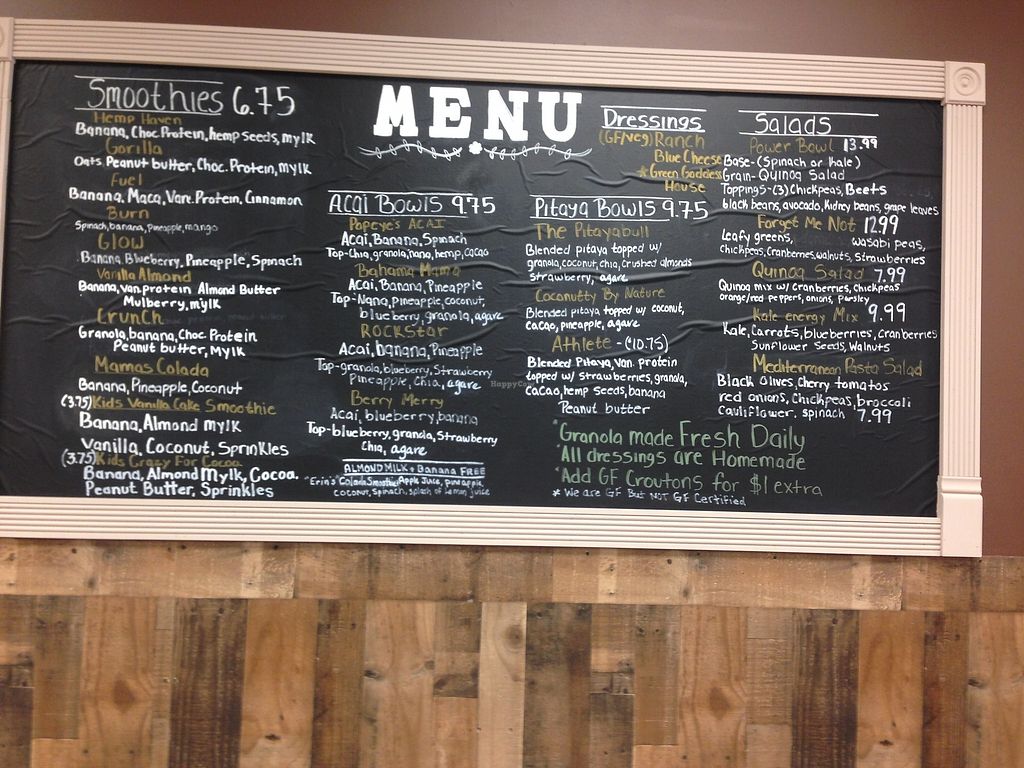 Smoothies 6.75
Hemp Haven
Banana, Choc Protein, hemp seeds, mylk
Gorilla
Oats Peanut butter, Choc. Protein, mylk
Fuel
Banana, Maca, Van. Protein, Cinnamon
Burn
Spinach, banana, pineapple, mango
Glow
Banana Blueberry, Pineapple, Spinach
Vanilla Almond
Banana, van protein Almond Butter
Mulberry, mylk
Crunch
Granola, banana, Choc. Protein
Peanut butter, Mylk
Mamas Colada
Banana, Pineapple, Coconut
(3.75) Kids Vanilla Cake Smoothie
Banana, Almond mylk
Vanilla, Coconut, Sprinkles
(3.75) Kids Crazy For Cocoa
Banana, Almond Mylk, Cocoa
Peanut Butter, Sprinkles
MENU
Acai Bowls 9.75
Popeye's ACAI
Acai, Banana, Spinach
Top-Chia, granola, nana, hemp, cacao
Bahama Mama
Acai, Banana, Pineapple
Top-Nana, pineapple, coconut,
blueberry, granola, agave
ROCKStar
Acai, banana, Pineapple
Top-granola, blueberry, Strawberry
Pineapple, Chia, agave
Berry Merry
Acai, blueberry, banana
Top-blueberry, granola, Strawberry
Chia, agave
ALMOND MILK + Banana FREE
"Erin's" Colada Smoothie Apple Juice, pineapple,
coconut, spinach, splash of lemon juice
Pitaya Bowls 9.75
The Pitayabull
Blended pitaya topped w/
granola, coconut, chia, crushed almonds
strawberry, agave
Coconutty By Nature
Blended pitaya topped w/ coconut,
cacao, pineapple, agave
Athlete - (10.75)
Blended Pitaya, van protein
topped w/ strawberries, granola,
cacao, hemp seeds, banana
Peanut butter
Dressings
(GF/veg) Ranch
Blue Cheese
*Green Goddess
House
Salads
Power Bowl 13.99
Base-(Spinach or Kale)
Grain-Quinoa Salad
Toppings-(3) Chickpeas, Beets
black beans, avocado, Kidney beans, grape leaves
Forget Me Not 12.99
Leafy greens, wasabi peas,
chickpeas, Cranberries, walnuts, Strawberries
Quinoa Salad 7.99
Quinoa mix w/ cranberries, chickpeas
orange/red peppers, onions, parsley
Kale energy Mix 9.99
Kale, Carrots, blueberries, cranberries
Sunflower Seeds, Walnuts
Mediterranean Pasta Salad
Black Olives, Cherry tomatoes
red onions, Chickpeas, broccoli
Cauliflower, spinach 7.99
*Granola made Fresh Daily
*All dressings are Homemade
*Add GF Croutons for $1 extra
* We are GF But NOT GF Certified